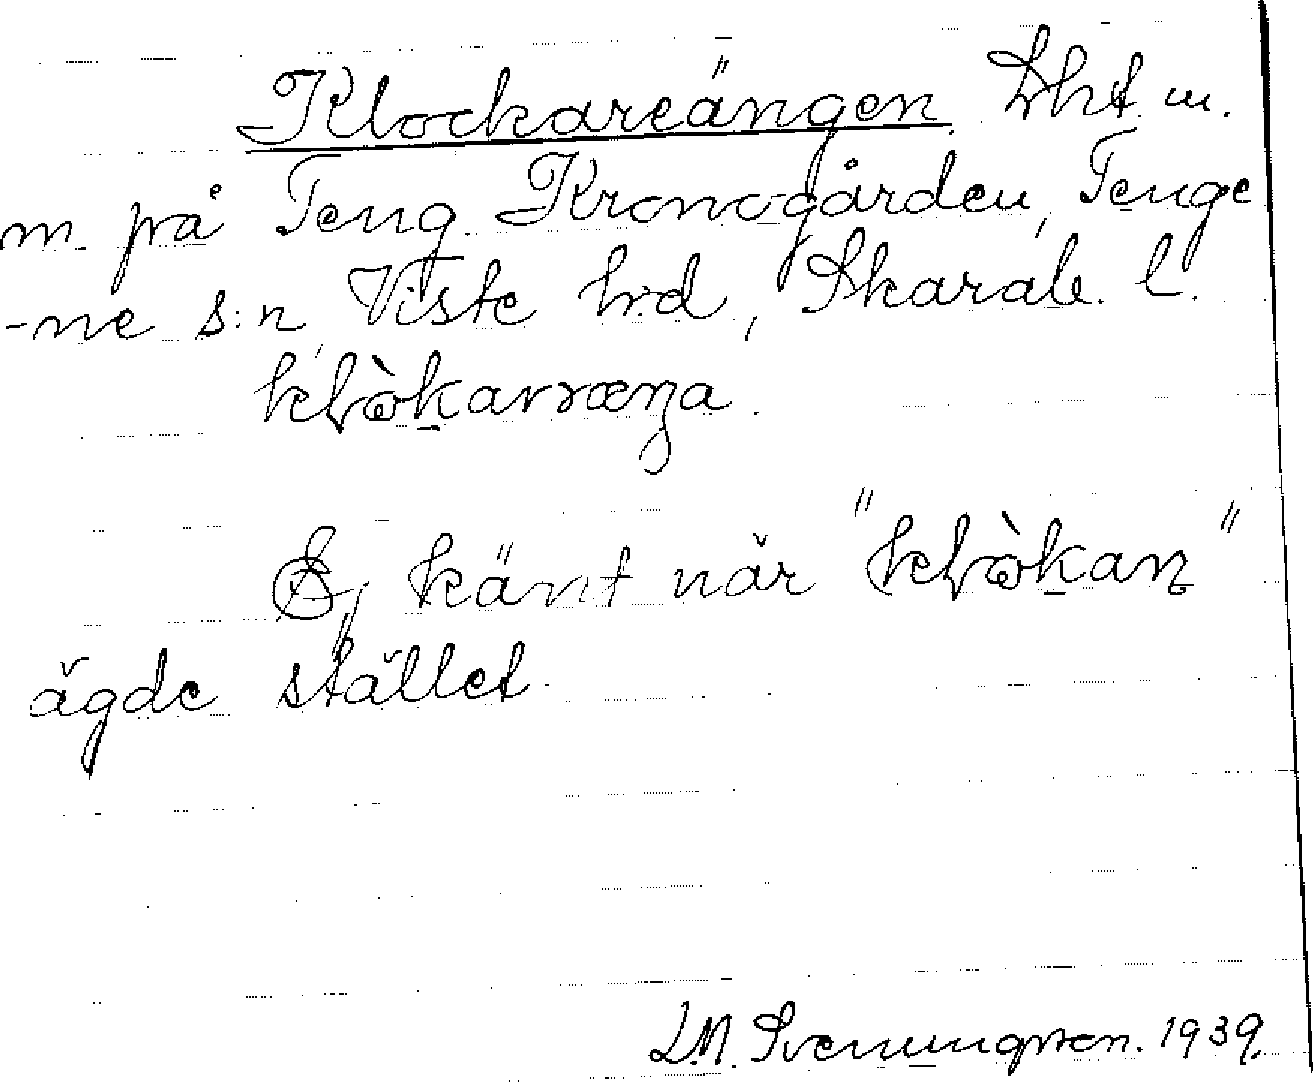 Klockareängen. Lht m.
m. på Teng Kronogården, Tenge
-ne s:n, Viste h:d, Skarab. l.
klòkaræŋa.
Ej känt när "klòkan"
ägde stället.
L.M. Svenungsson. 1939.